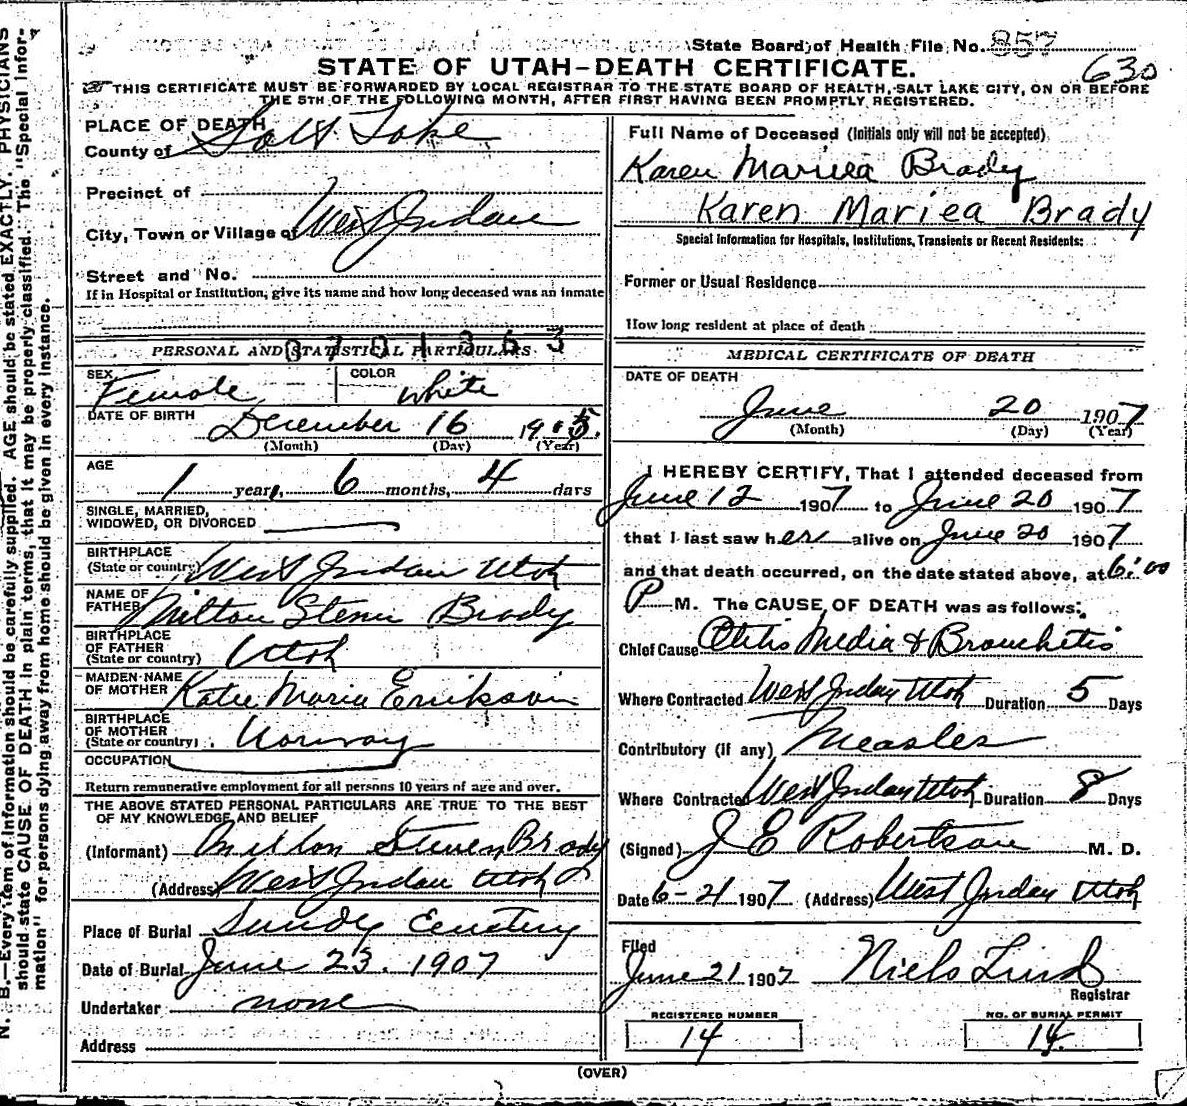 State Board of Health File No. 857
630
STATE OF UTAH–DEATH CERTIFICATE.
THIS CERTIFICATE MUST BE FORWARDED BY LOCAL REGISTRAR TO THE STATE BOARD OF HEALTH, SALT LAKE CITY, ON OR BEFORE
THE 5TH OF THE FOLLOWING MONTH, AFTER FIRST HAVING BEEN PROMPTLY REGISTERED.
PLACE OF DEATH
County of Salt Lake
Precinct of
City, Town or Village of West Jordan
Street and No.
If in Hospital or Institution, give its name and how long deceased was an inmate
PERSONAL AND STATISTICAL PARTICULARS
SEX Female COLOR white
DATE OF BIRTH December 16 1905.
(Month) (Day) (Year)
AGE
1 years, 6 months, 4 days
SINGLE, MARRIED,
WIDOWED, OR DIVORCED
BIRTHPLACE
(State or country) West Jordan Utah
NAME OF
FATHER Milton Brady
BIRTHPLACE
OF FATHER
(State or country) Utah
MAIDEN NAME
OF MOTHER Katie Maria
BIRTHPLACE
OF MOTHER
(State or country) Norway
OCCUPATION
Return remunerative employment for all persons 10 years of age and over.
THE ABOVE STATED PERSONAL PARTICULARS ARE TRUE TO THE BEST
OF MY KNOWLEDGE AND BELIEF
(Informant) Milton Steven Brady
(Address) West Jordan Utah
Place of Burial Cemetery
Date of Burial June 23. 1907
Undertaker none
Address
Full Name of Deceased (Initials only will not be accepted)
Karen Mariea Brady
Karen Mariea Brady
Special Information for Hospitals, Institutions, Transients or Recent Residents:
Former or Usual Residence
How long resident at place of death
MEDICAL CERTIFICATE OF DEATH
DATE OF DEATH
June 20 1907
(Month) (Day) (Year)
I HEREBY CERTIFY, That I attended deceased from
June 12 1907 to June 20 1907
that I last saw her alive on June 20 1907
and that death occurred, on the date stated above, at 6:00
P M. The CAUSE OF DEATH was as follows:
Chief Cause Otitis Media & Bronchitis
Where Contracted West Jordan Utah Duration 5 Days
Contributory (if any) Measles
Where Contracted West Jordan Utah Duration 8 Days
(Signed) J E Robertson M. D.
Date 6-21 1907 (Address) West Jordan Utah
Filed
June 21 1907 Niels Lind
Registrar
REGISTERED NUMBER
14
NO. OF BURIAL PERMIT
14
(OVER)
N. B.—Every item of information should be carefully supplied. AGE should be stated EXACTLY. PHYSICIANS
should state CAUSE OF DEATH in plain terms, that it may be properly classified. The "Special Infor-
mation" for persons dying away from home should be given in every instance.